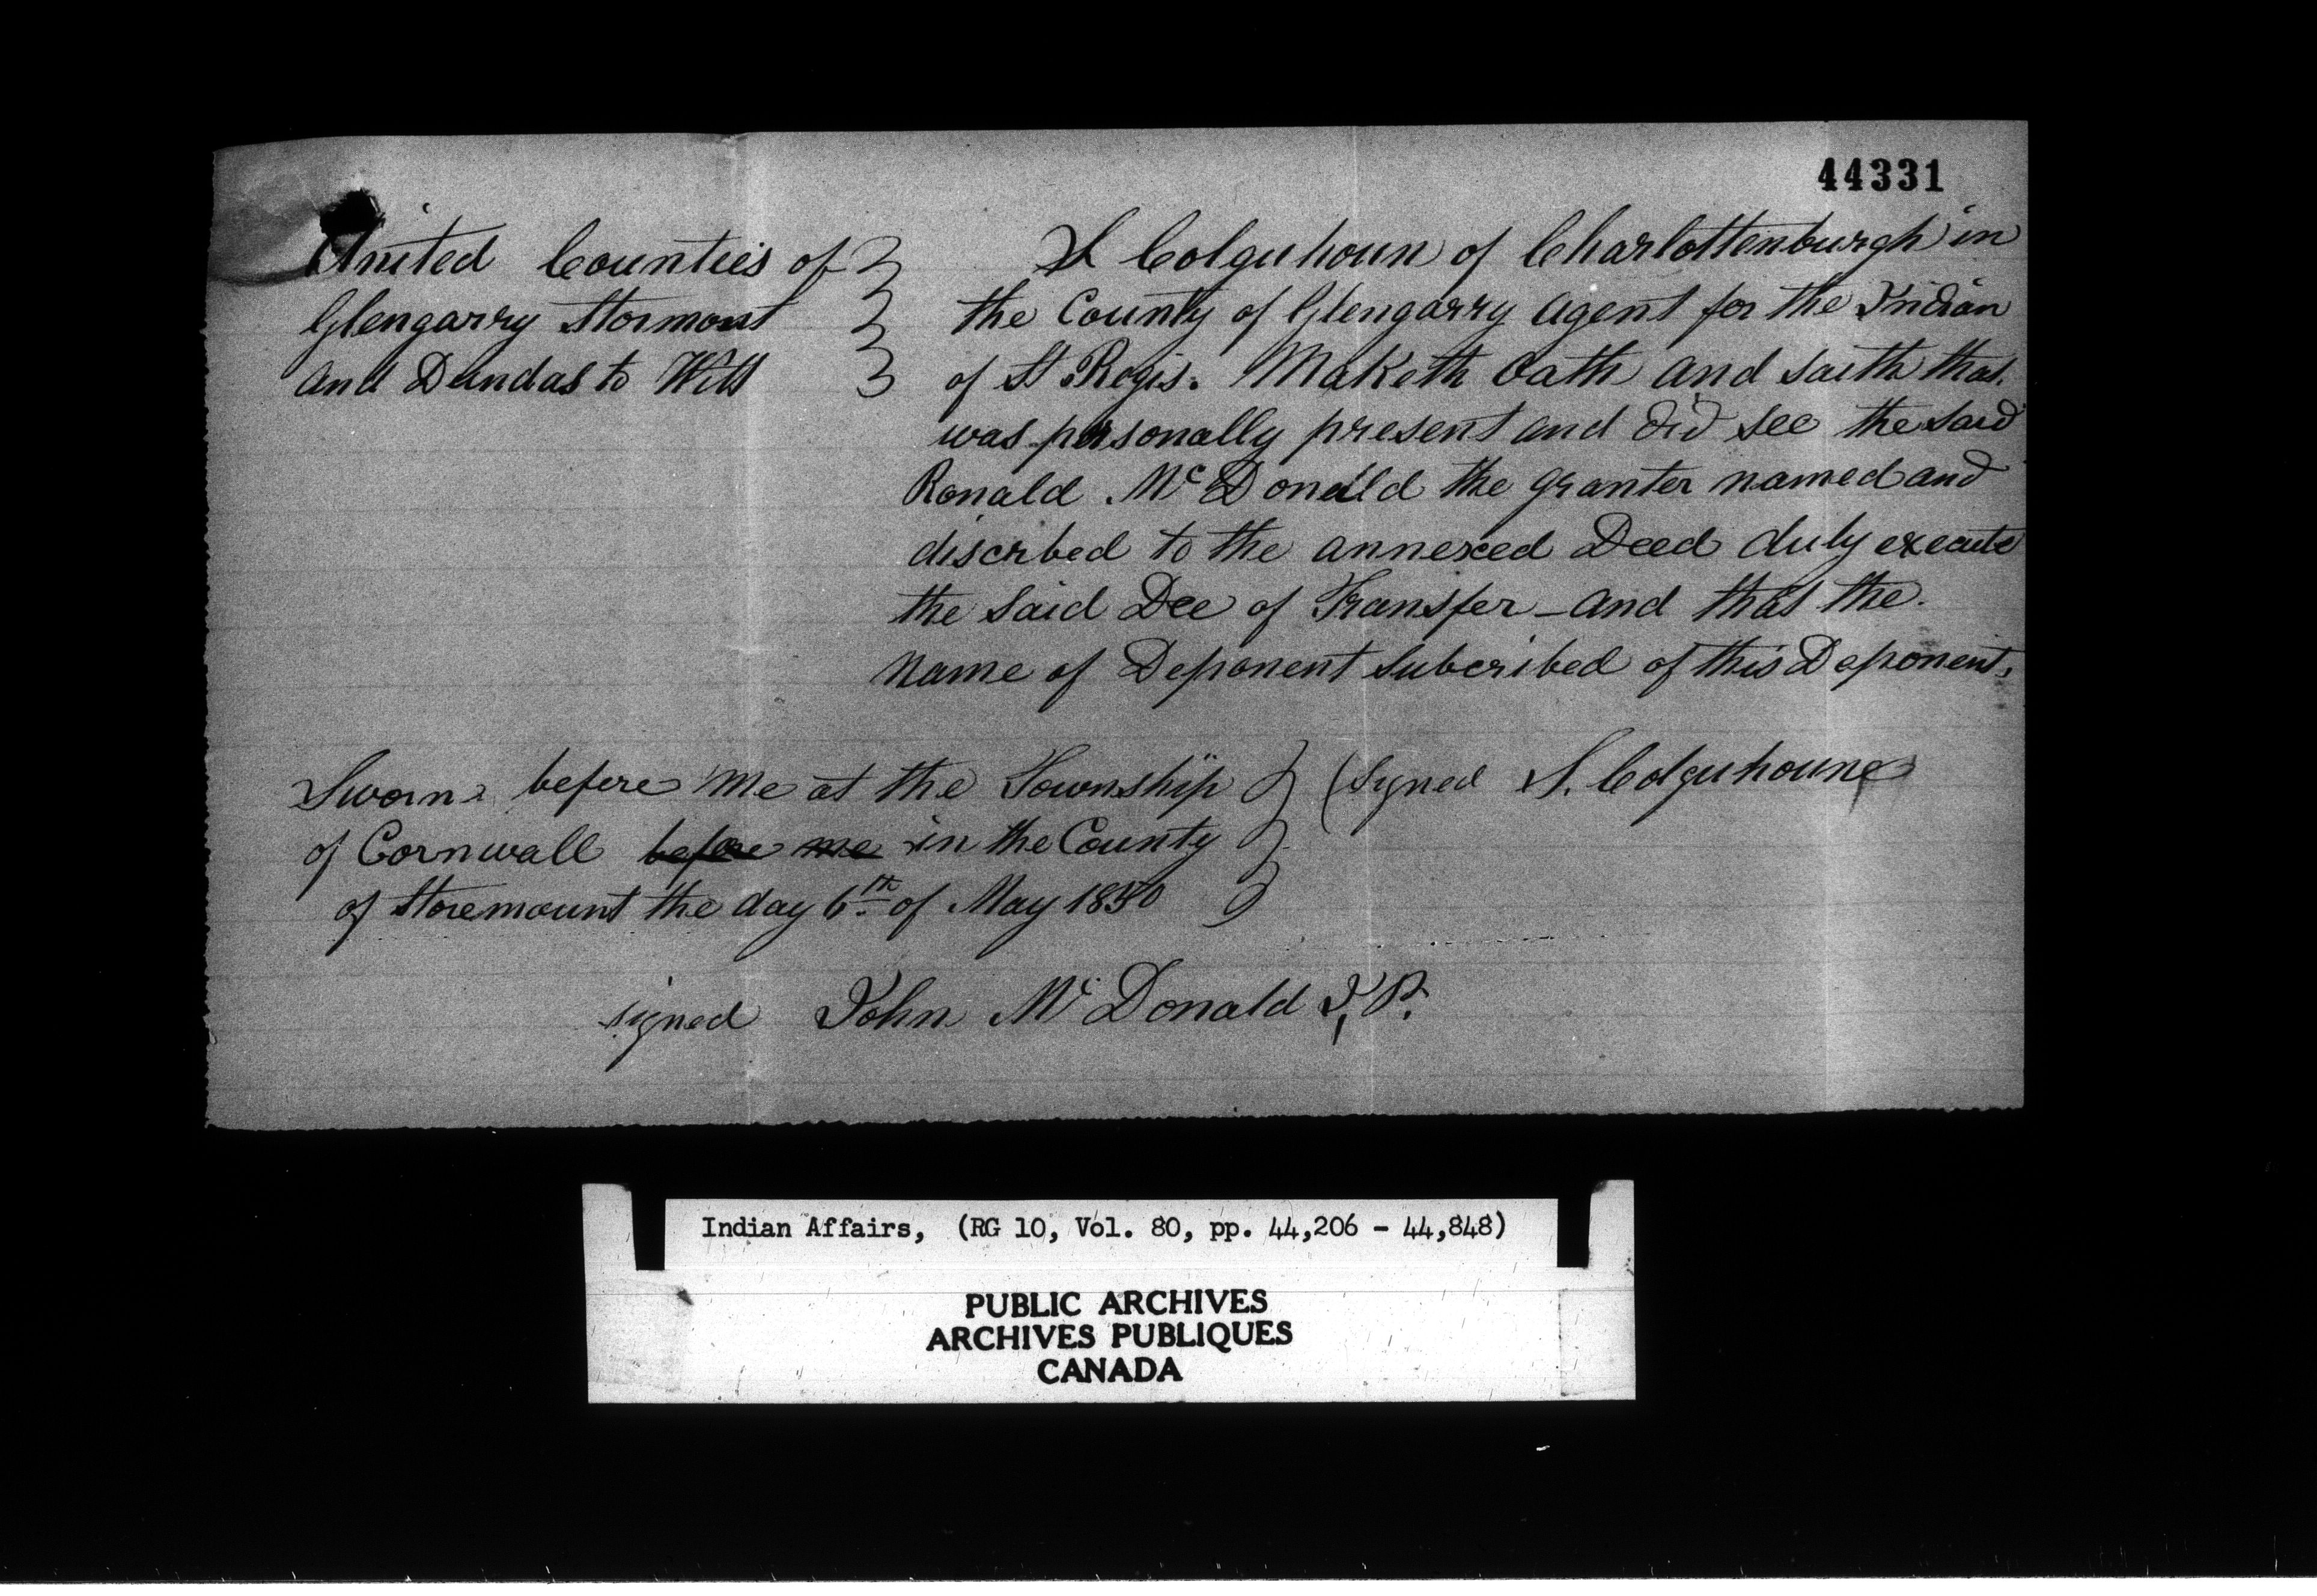 44331
United Counties of
Glengarry Stormont
and Dundas to Witt
S Colquhoun of Charlottenburgh in
the County of Glengarry Agent for the Indian
of St Regis. Maketh Oath and saith that
was personally present and did see the said
Ronald McDonald the granter named and
discribed to the annexed Deed duly execute
the said Dee of Transfer - and that the
name of Deponent subcribed of this Deponent.
Sworn before me at the Township
of Cornwall before me in the County
of Storemount the day 6th of May 1850
(Signed S. Colquhoune
signed John McDonald J.P.
Indian Affairs, (RG 10, Vol. 80, pp. 44,206 - 44,848)
PUBLIC ARCHIVES
ARCHIVES PUBLIQUES
CANADA